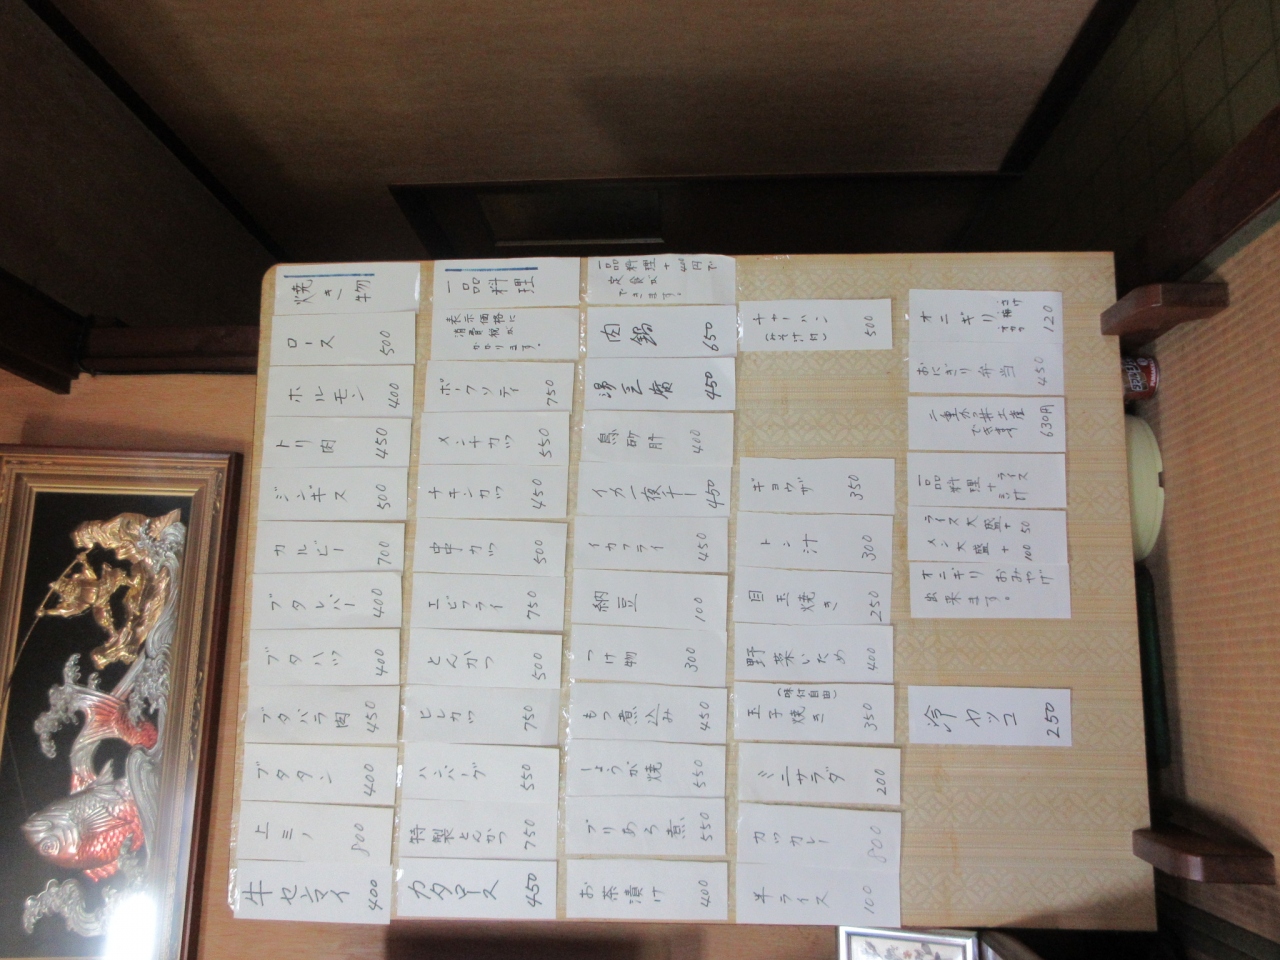 焼き物
ロース 500
ホルモン 400
トリ肉 450
ジンギス 500
カルビー 700
ブタレバー 400
ブタハツ 400
ブタバラ肉 450
ブタタン 400
上ミノ 800
牛センマイ 400
一品料理
表示価格に
消費税が
かかります。
ポークソティ 750
メンチカツ 550
チキンカツ 450
串カツ 500
エビフライ 750
とんかつ 500
ヒレカツ 750
ハンバーグ 550
特製とんかつ 750
カタロース 450
一品料理+400円で
定食が
できます。
肉鍋 650
湯豆腐 450
鳥砂肝 400
イカ一夜干 450
イカフライ 450
納豆 100
つけ物 300
もつ煮込み 450
しょうが焼 550
ブリあら煮 550
お茶漬け 400
チャーハン
(みそ汁付) 500
ギョウザ 350
トン汁 300
目玉焼き 250
野菜いため 400
(味付自由)
玉子焼き 350
ミニサラダ 200
カツカレー 800
半ライス 100
オニギリ 120
おにぎり弁当 450
二重かつ丼土産
できます 630円
一品料理+ライス
ライス大盛+50
メン大盛+100
オニギリおみやげ
出来ます。
冷ヤッコ 250